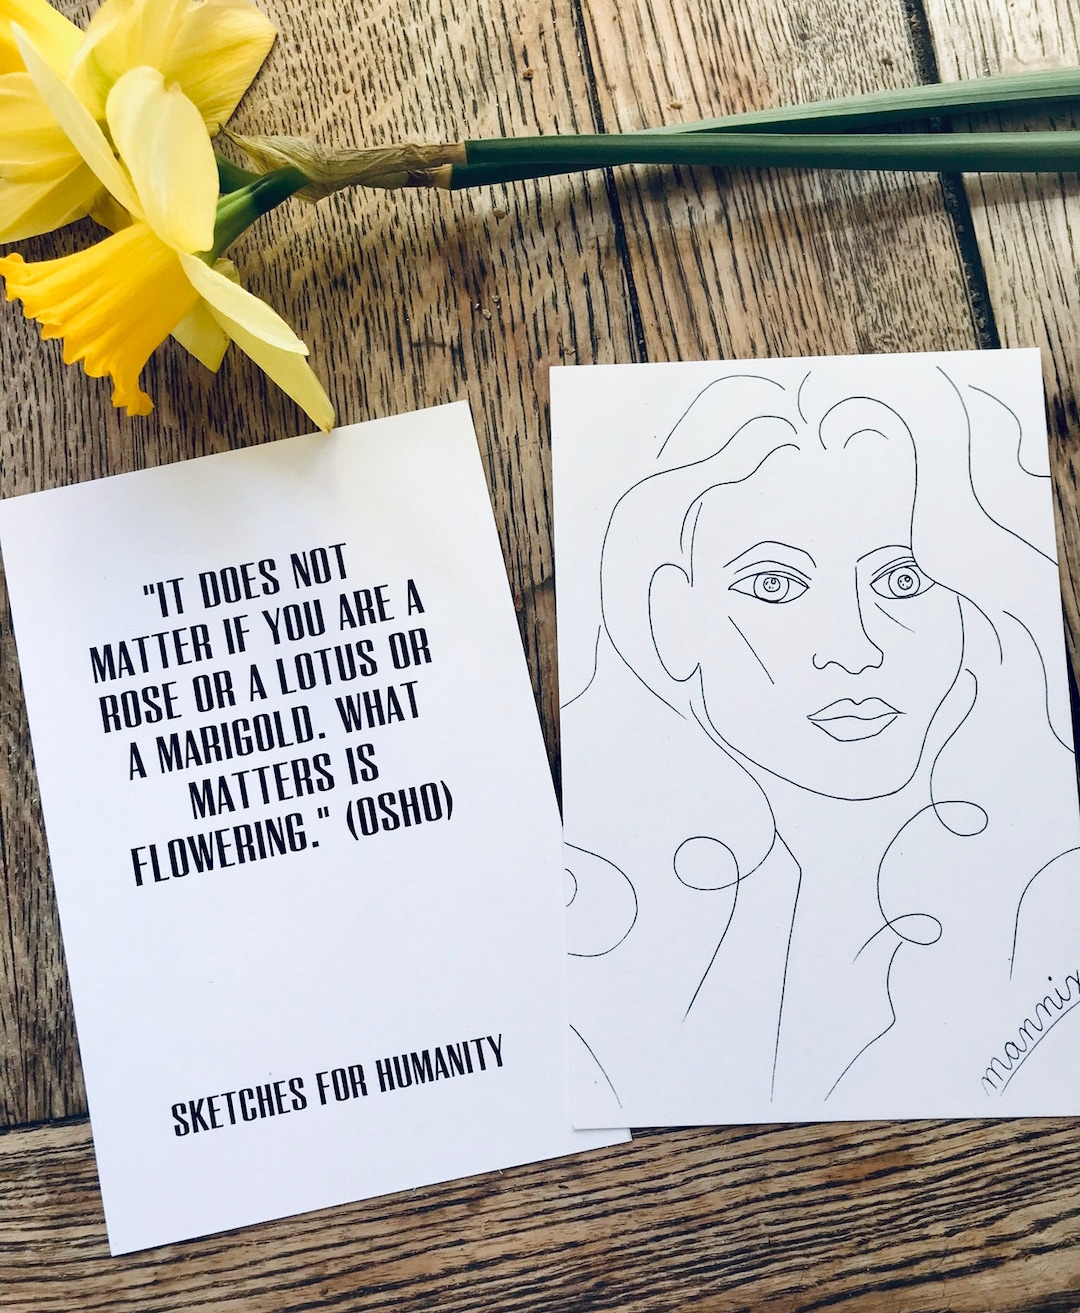 "IT DOES NOT
MATTER IF YOU ARE A
ROSE OR A LOTUS OR
A MARIGOLD. WHAT
MATTERS IS
FLOWERING." (OSHO)
SKETCHES FOR HUMANITY
mannix